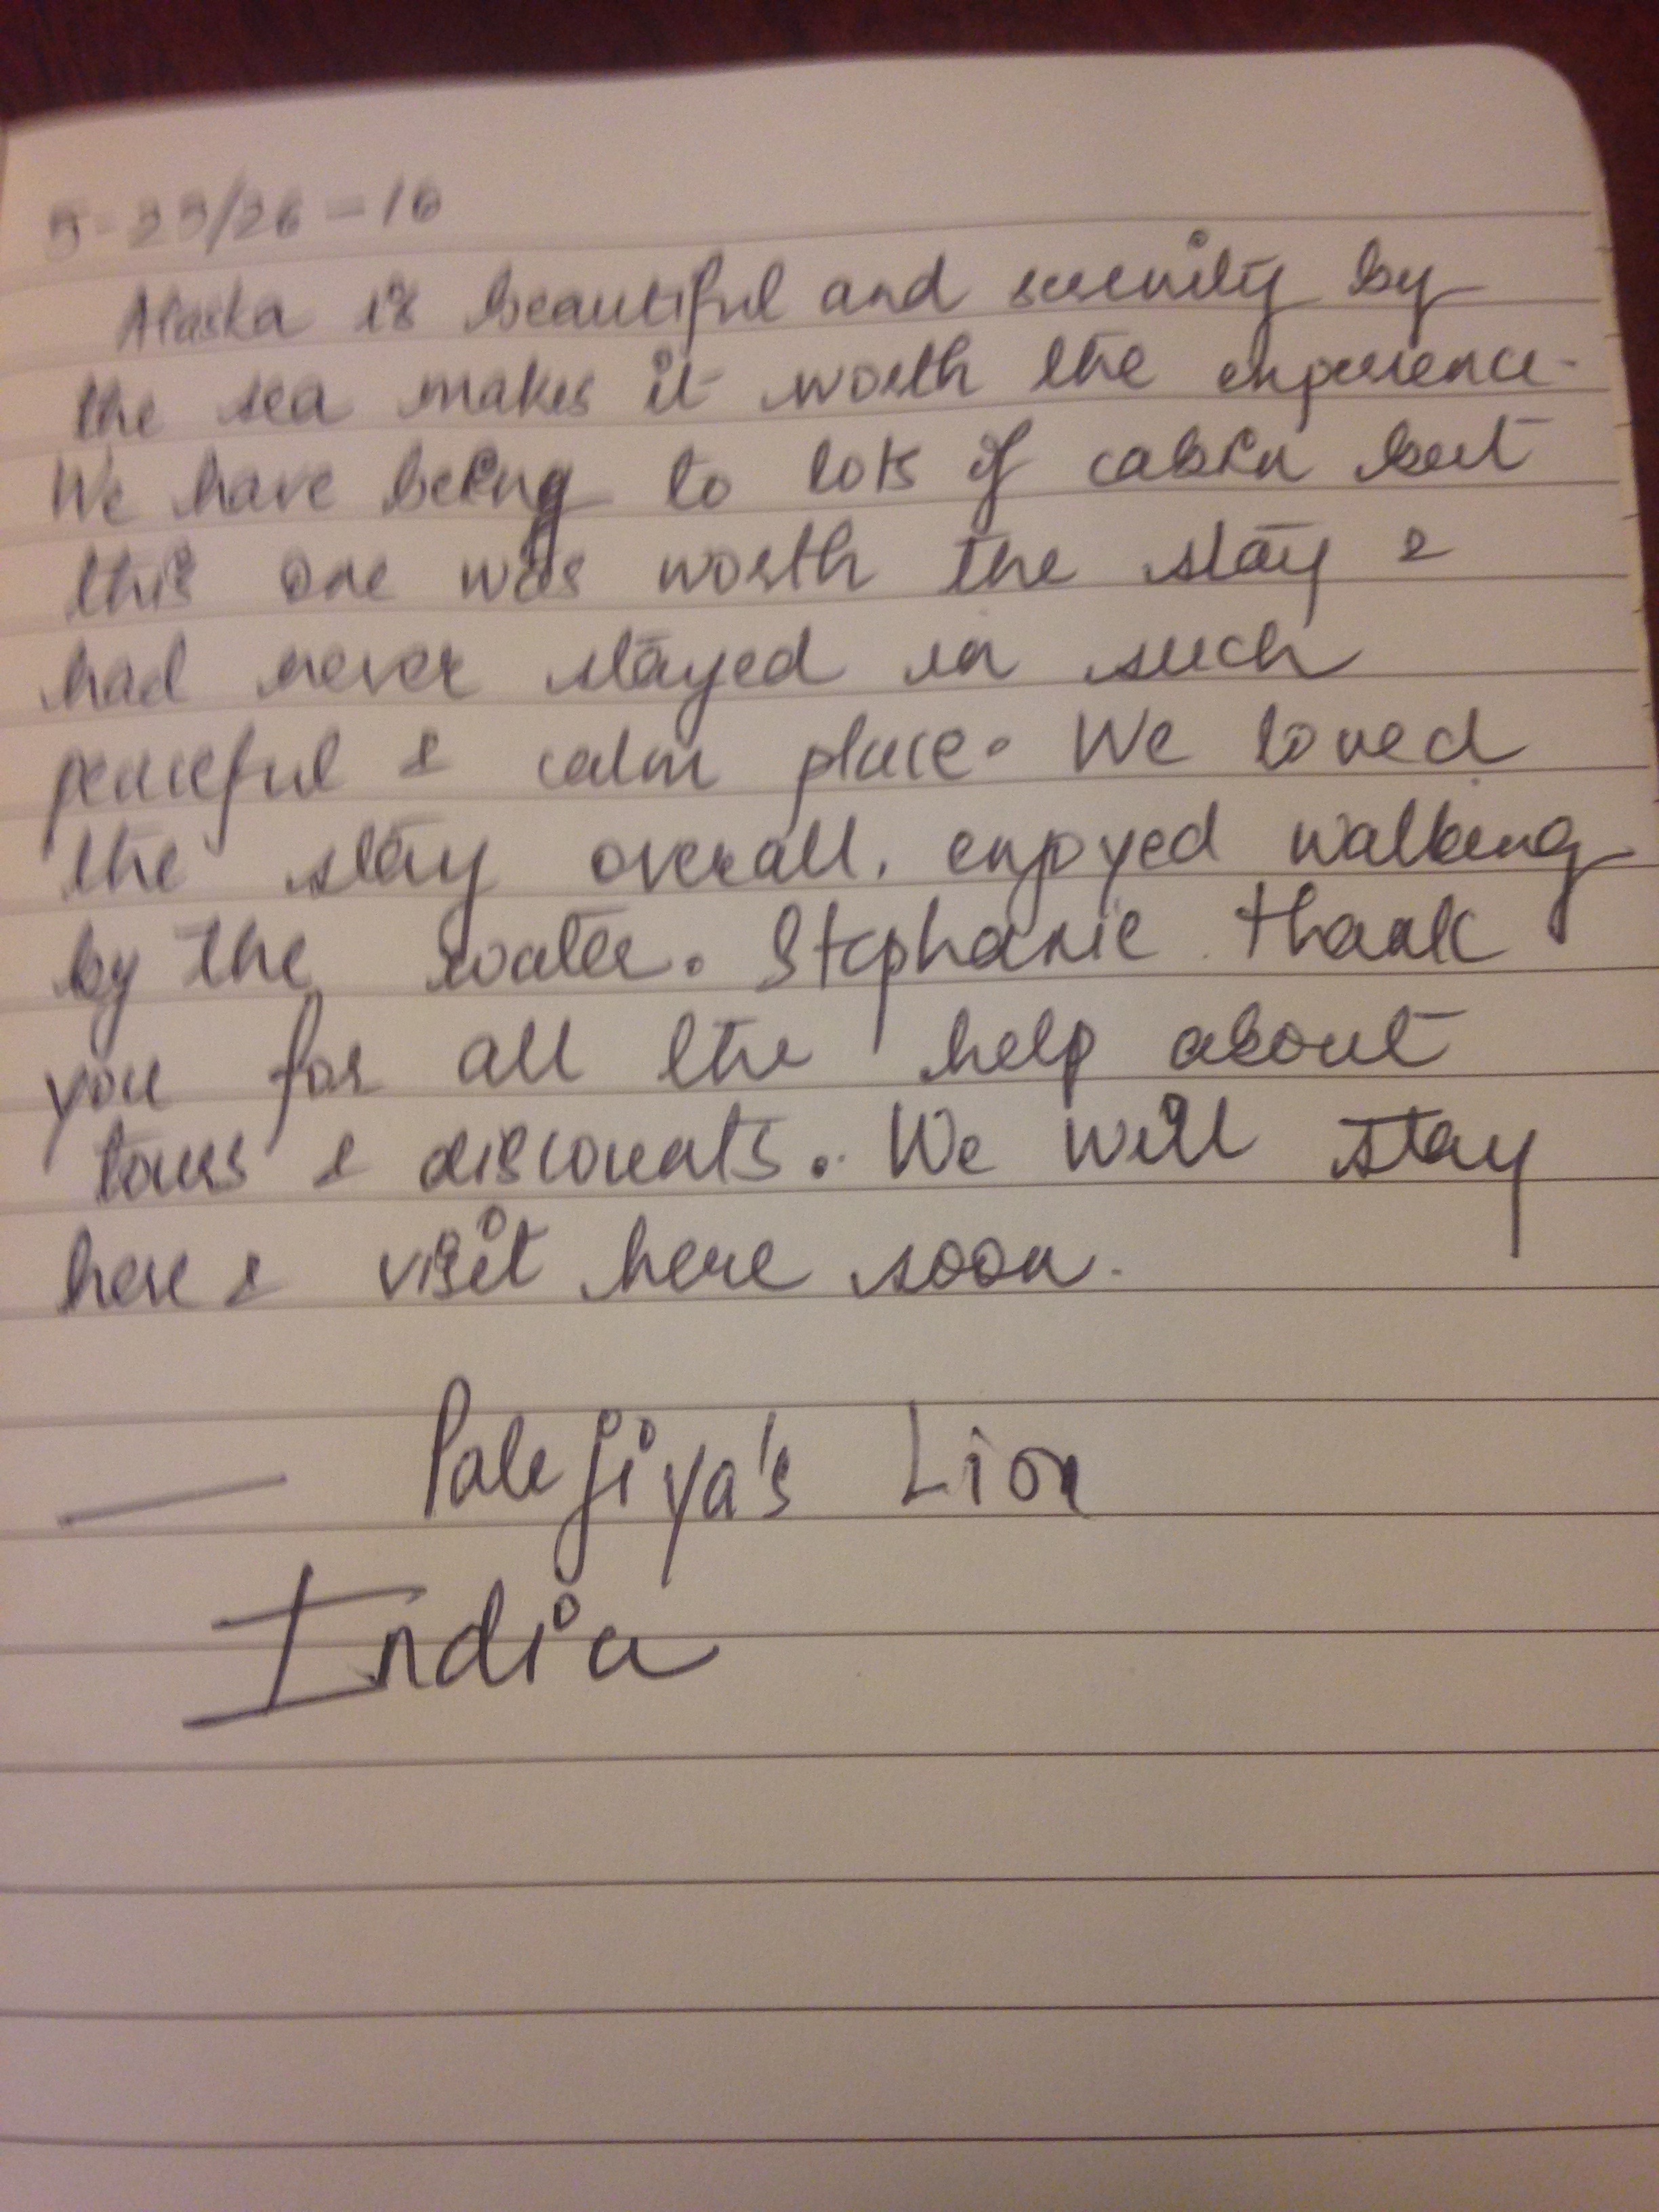 5-23/26-16
Alaska is beautiful and serenity by
the sea makes it worth the experience.
We have being to lots of cabin but
this one was worth the stay &
had never stayed in such
peaceful & calm place. We loved
the stay overall, enjoyed walking
by the water. Stephanie thank
you for all the help about
tours & discounts. We will stay
here & visit here soon.
— Palejiya's Lion
India